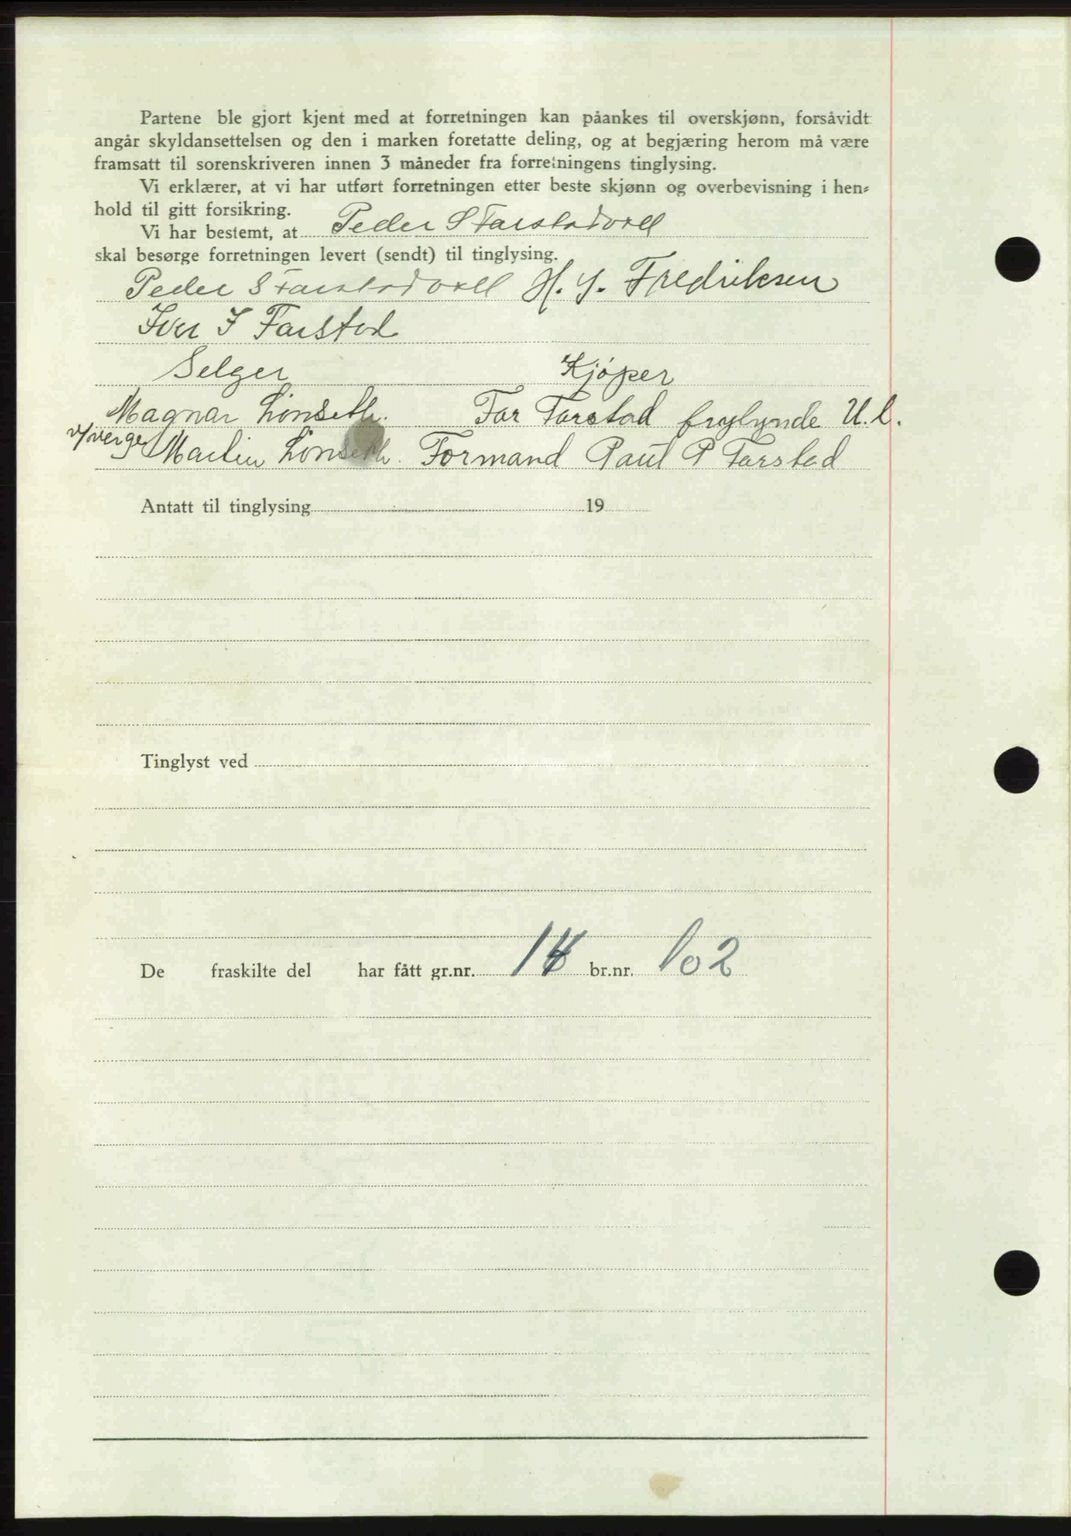 Partene ble gjort kjent med at forretningen kan påankes til overskjønn, forsåvidt
angår skyldansettelsen og den i marken foretatte deling, og at begjæring herom må være
framsatt til sorenskriveren innen 3 måneder fra forretningens tinglysing.
Vi erklærer, at vi har utført forretningen etter beste skjønn og overbevisning i hen-
hold til gitt forsikring.
Vi har bestemt, at Peder S Farstadvoll
skal besørge forretningen levert (sendt) til tinglysing.
Peder S Farstadvoll H. J. Fredriksen
Iver I Farstad
Selger Kjøper
Magnar Lönseth. For Farstad frilynde U.L.
v/verge Martin Lönseth. Formand Paul P Farstad
Antatt til tinglysing 19
Tinglyst ved
De fraskilte del har fått gr.nr. 18 br.nr. 102